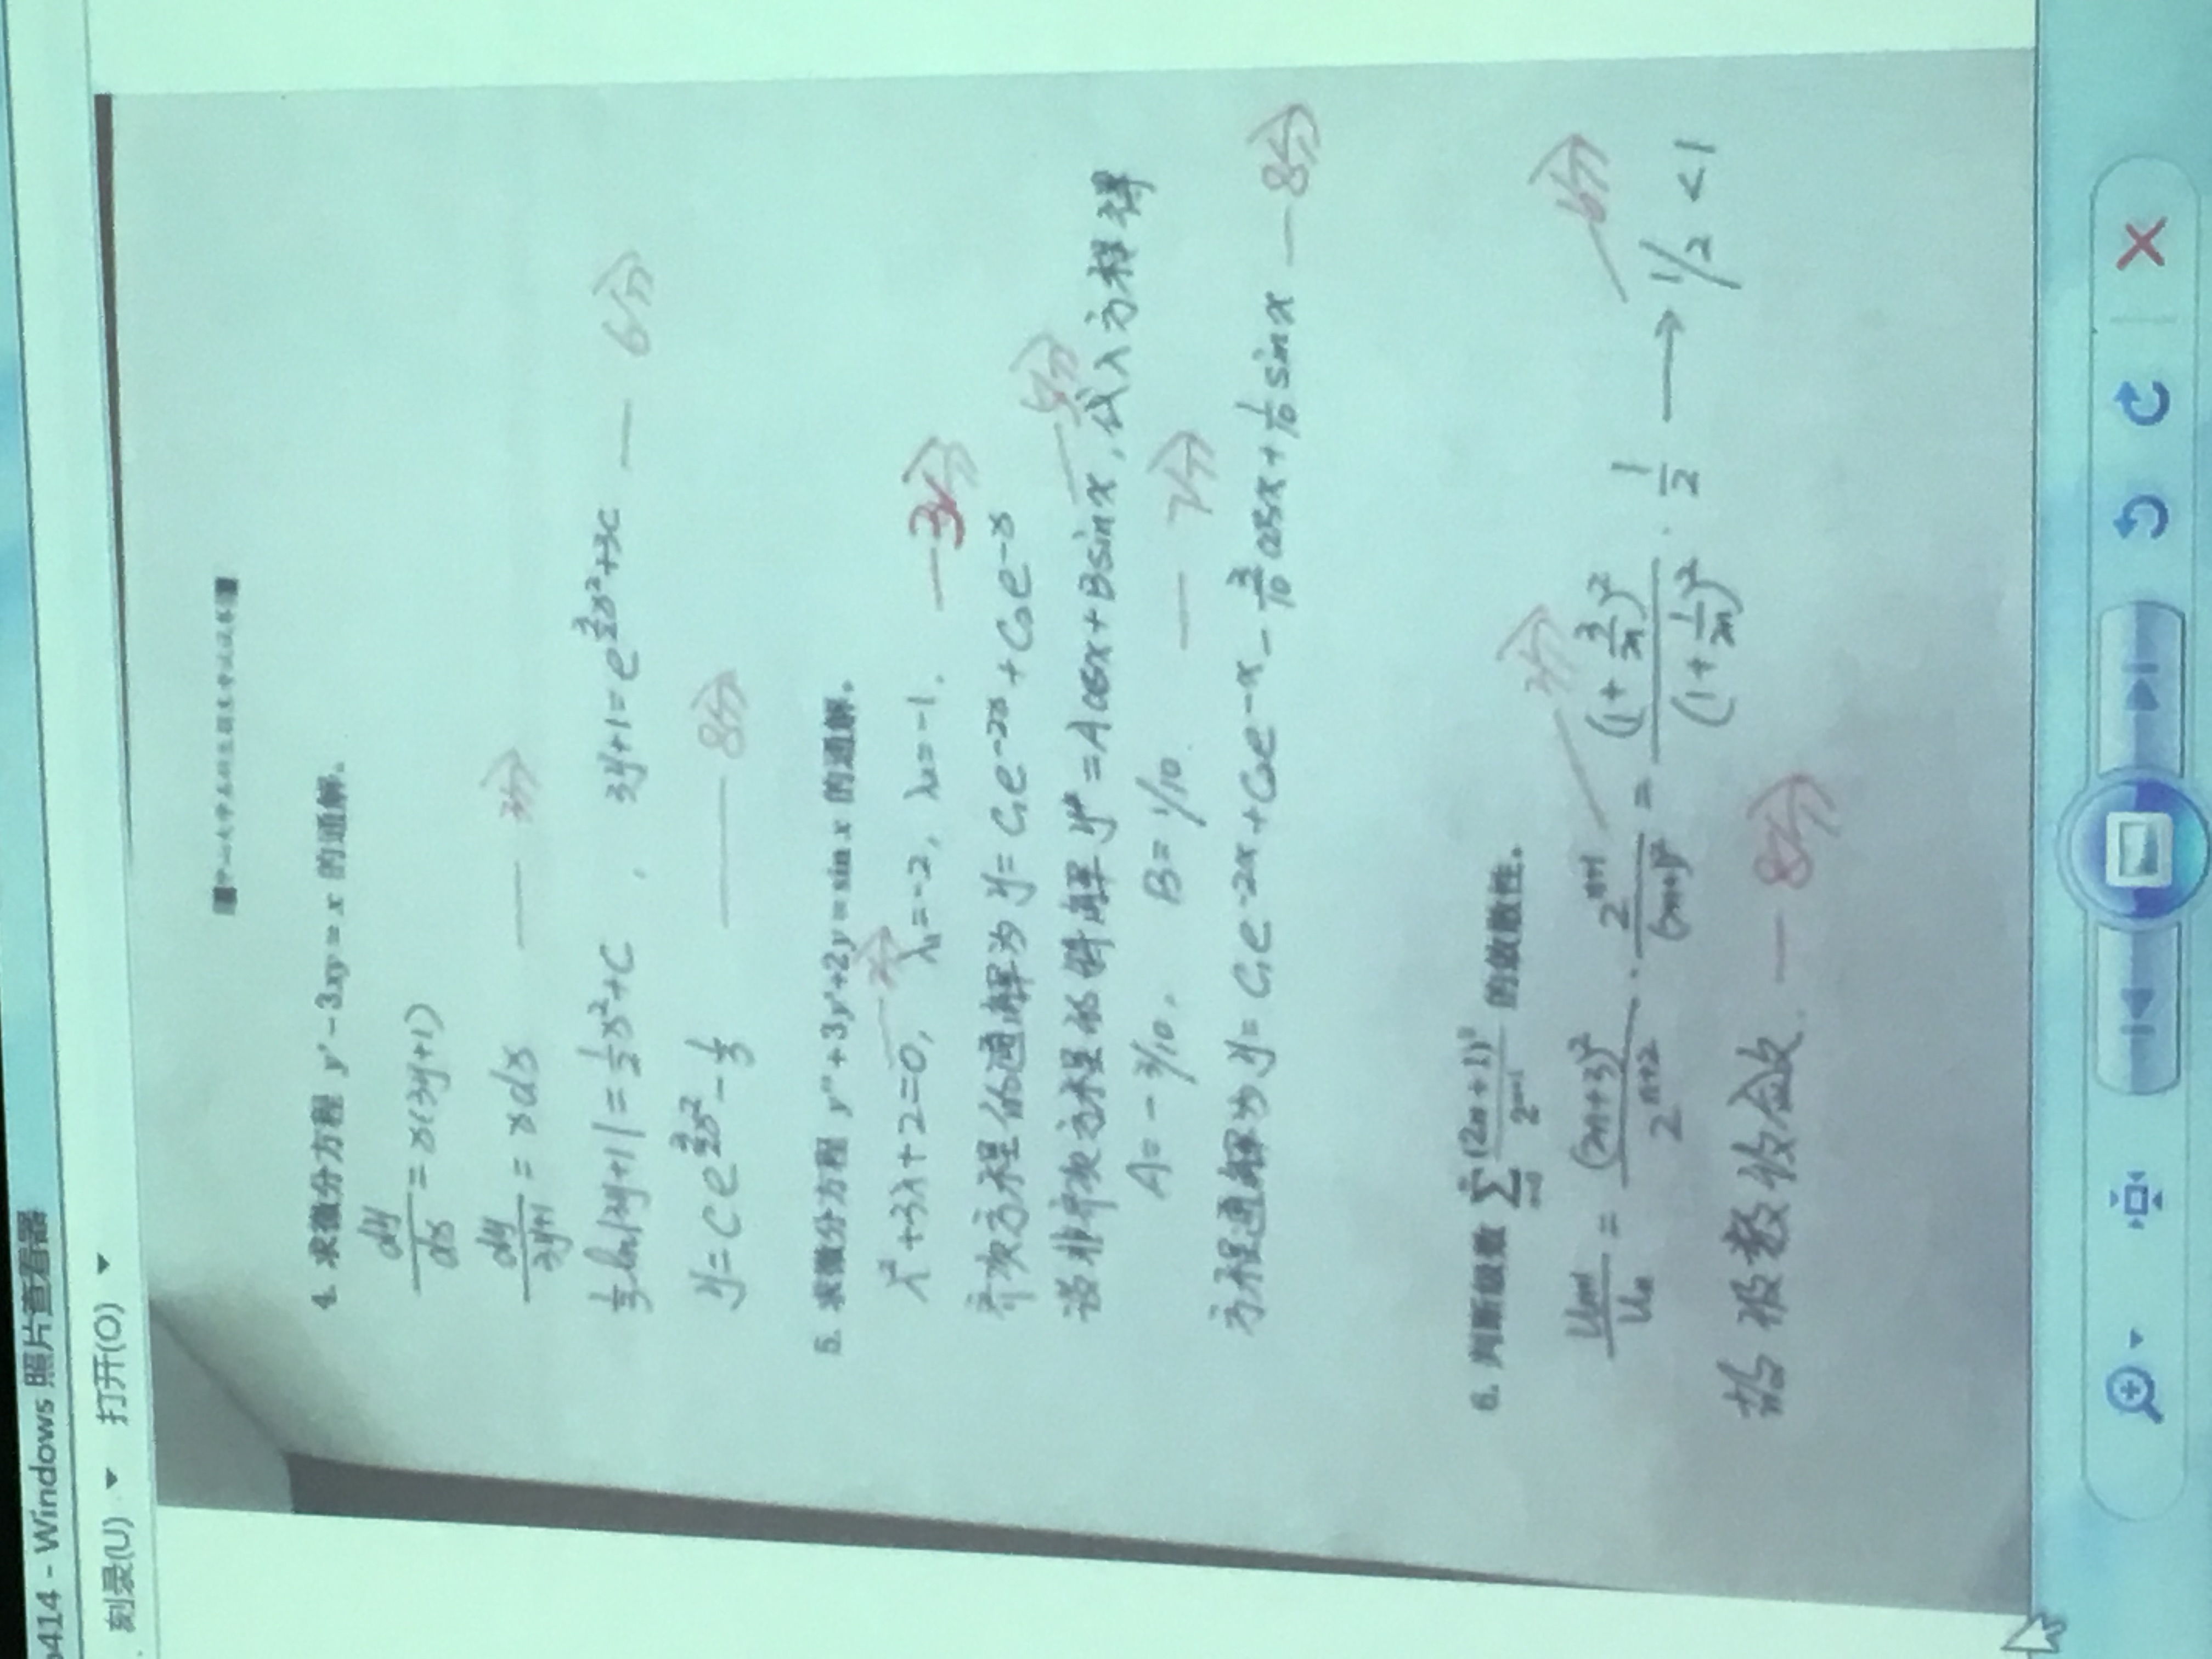 414 - Windows 照片查看器
刻录(U) 打开(O)
中山大学本科生期末考试试卷
4. 求微分方程 y' - 3xy = x 的通解。
dy/dx = x(3y+1)
dy/(3y+1) = xdx — 3分
1/3 ln|3y+1| = 1/2 x²+C , 3y+1 = e^(3/2 x²+3C) — 6分
y = Ce^(3/2 x²) - 1/3 — 8分
5. 求微分方程 y''+3y'+2y = sin x 的通解。
λ²+3λ+2=0, — 2分 λ₁=-2, λ₂=-1. — 3分
齐次方程的通解为 y = C₁e^(-2x) + C₂e^(-x)
设非齐次方程的特解 y* = Acosx+Bsinx, — 5分 代入方程得
A = -3/10, B = 1/10. — 7分
方程通解为 y = C₁e^(-2x) + C₂e^(-x) - 3/10 cosx + 1/10 sinx — 8分
6. 判断级数 ∑ (2n+1)²/2^(n+1) 的敛散性。
Uₙ₊₁/Uₙ = (2n+3)²/2^(n+2) · 2^(n+1)/(2n+1)² — 3分 = (1+3/2n)²/(1+1/2n)² · 1/2 → 1/2 < 1 — 6分
故级数收敛. — 8分